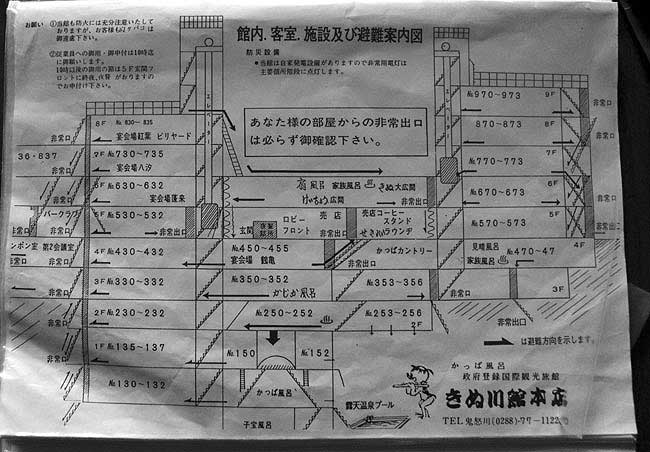 館内、客室、施設及び避難案内図
お願い ①当館も防火には充分注意いたして
おりますが、お客様も
御遠慮下さい。
②従業員への御用・御申付は10時迄
に御願いします。
10時以後の御用の節は5F玄関フ
ロントに終夜、夜警がおりますの
でお申付け下さい。
防災設備
●当館は自家発電設備がありますので非常用電灯は
主要個所階段に点灯します。
あなた様の部屋からの非常出口
は必らず御確認下さい。
エレベーター
8F № 830~835
宴会場紅葉 ビリヤード
非常口
36・837
7F №730~735
宴会場八汐
非常口
6F №630~632
宴会場蓬莱
非常口
パークラウ
5F №530~532
非常出口
非常口
ンポン室 第2会議室
4F №430~432
非常口
3F №330~332
非常口
2F №230~232
非常口
1F №135~137
非常口
№130~132
扇風呂 家族風呂 きぬ大広間
けっちょう広間
玄関
ロビー
フロント
売店
売店コーヒー
スタンド
せきれいラウンヂ
№450~455
宴会場 鶴亀
非常出口
かっぱカントリー
非常口
№350~352
№353~356
かじか風呂
№250~252
№253~256
2F
№150
№152
かっぱ風呂
子宝風呂
露天温泉プール
№970~973 9F
非常口
870~873 8F
非常口
№770~773 7F
非常口
№670~673 6F
非常口
№570~573 5F
非常出口
見晴風呂
家族風呂 №470~47
4F
非常口
3F
非常口
非常出口
は避難方向を示します。
かっぱ風呂
政府登録国際観光旅館
きぬ川館本店
TEL 鬼怒川(0288)-77-1122